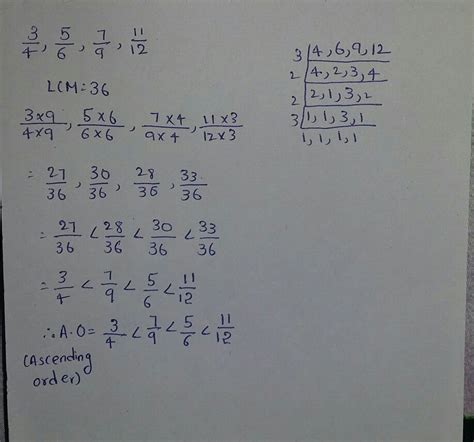 3/4, 5/6, 7/9, 11/12
LCM=36
3×9/4×9, 5×6/6×6, 7×4/9×4, 11×3/12×3
= 27/36, 30/36, 28/36, 33/36
= 27/36 < 28/36 < 30/36 < 33/36
= 3/4 < 7/9 < 5/6 < 11/12
∴A.O= 3/4 < 7/9 < 5/6 < 11/12
(Ascending
order)
3|4,6,9,12
2|4,2,3,4
2|2,1,3,2
3|1,1,3,1
1,1,1,1